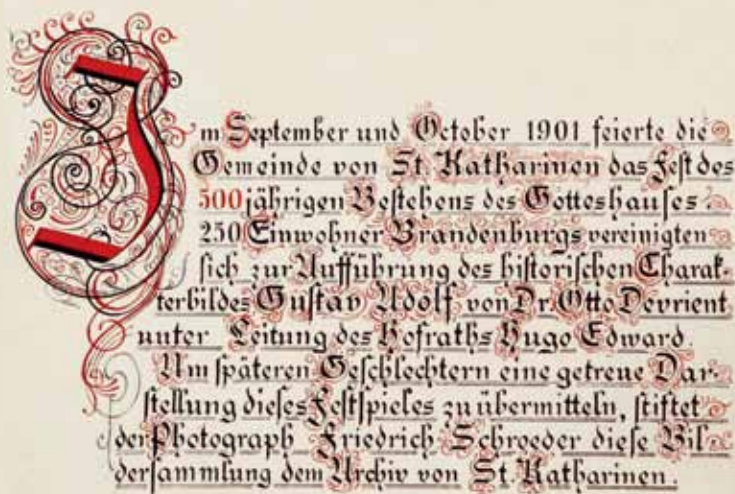 Im September und October 1901 feierte die
Gemeinde von St. Katharinen das Fest des
500 jährigen Bestehens des Gotteshauses.
250 Einwohner Brandenburgs vereinigten
sich zur Aufführung des historischen Charak-
terbildes Gustav Adolf von Dr. Otto Devrient
unter Leitung des Hofraths Hugo Edward.
Um späteren Geschlechtern eine getreue Dar-
stellung dieses Festspieles zu übermitteln, stiftet
der Photograph Friedrich Schroeder diese Bil-
dersammlung dem Archiv von St. Katharinen.